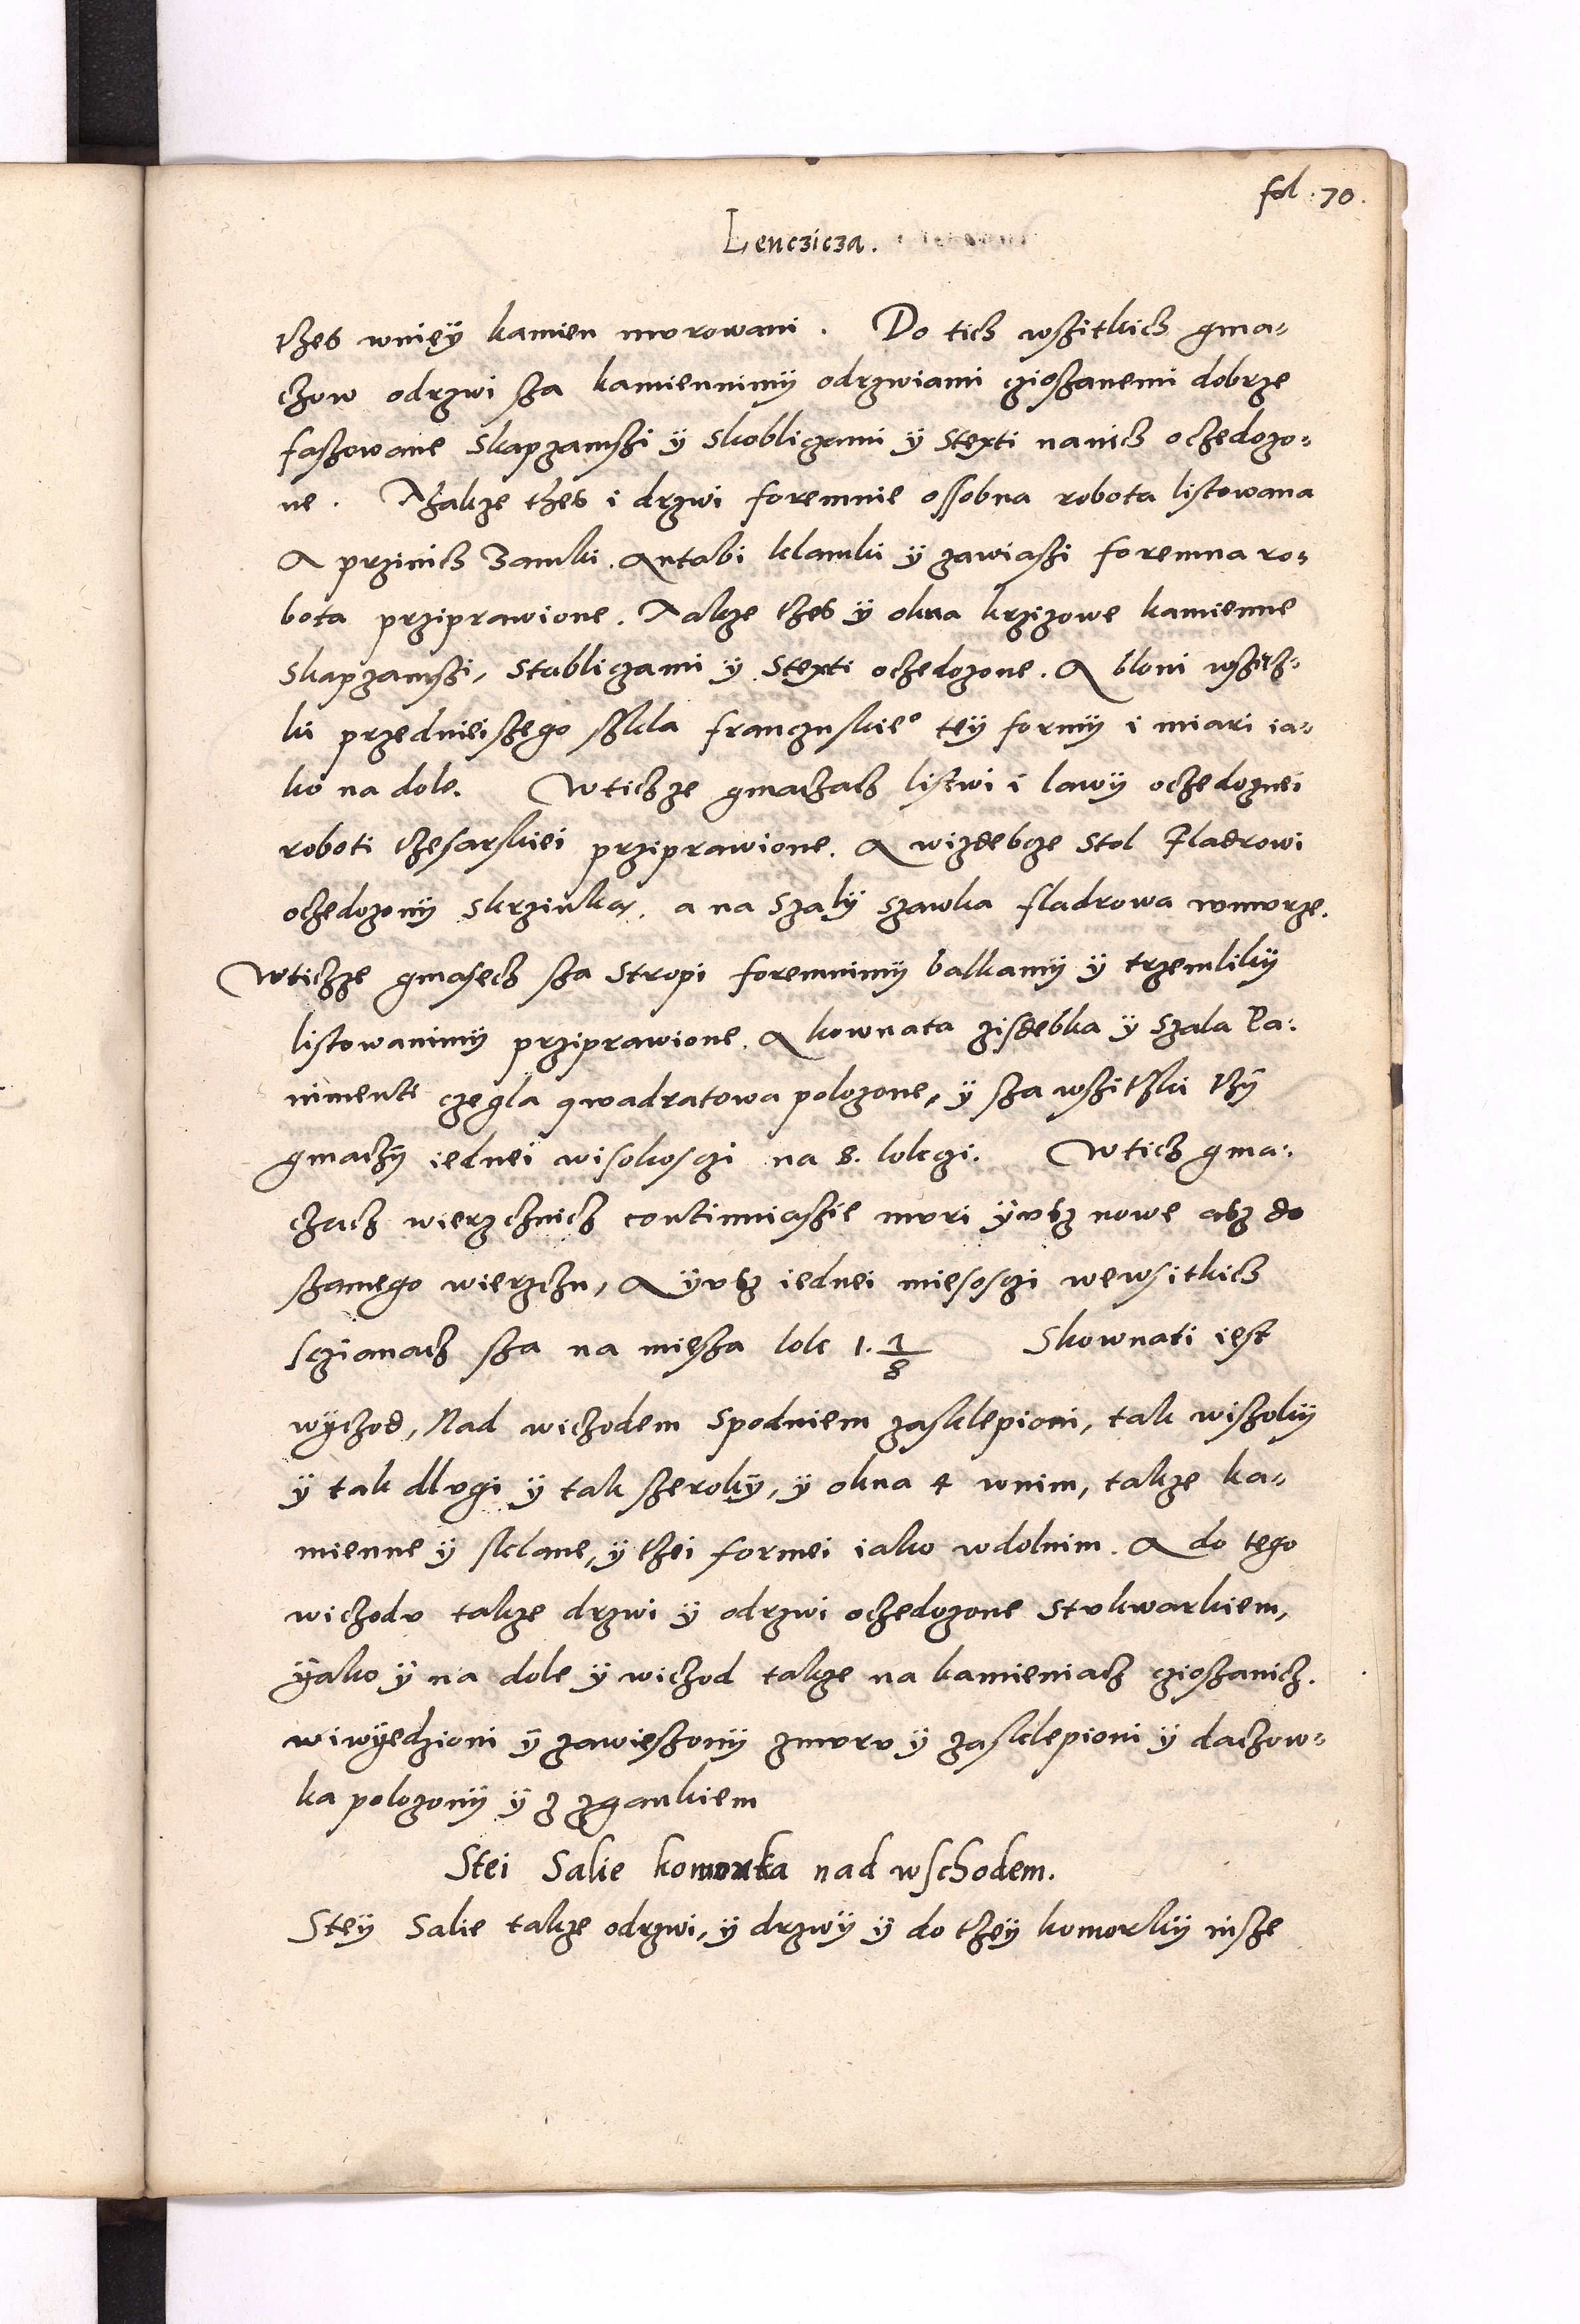 fol. 70.
Lenczicza.
thes wnięÿ kamien mvrowani. Do tich wszitkich gma-
chow odrzwi sza kamiennimÿ odrzwiami cziosanemi dobrze
faszowane Skapzamszi ÿ Skobliczami ÿ Stexti nanich ochedozo-
ne. Thakze thes i drzwi foremnie ossobna robota listowana
A przinich Zamki. Antabi klamki ÿ zawiaszi foremna ro-
bota prziprawione. Takze thes ÿ okna krzizowe kamienne
Skapzamszi, Stabliczami ÿ Stexti ochedozone. A bloni wszich-
ki przednieiszego szkla franczuskieº teÿ formÿ i miari ia-
ko na dole. Wtichze gmachach listwi i lawÿ ochedoznei
roboti thesarskiei prziprawione. A wizdebcze Stol Fladrowi
ochedozonÿ Skrzinka, a na Szalÿ Szawka fladrowa wmvrze.
Wtichze gmasech sza Stropi foremnimÿ balkamÿ ÿ trzemlikÿ
listowanimÿ prziprawione. A kownata zisdebka ÿ Szala Pa-
nimenti czegla qwadratowa polozone, ÿ sza wszithki thÿ
gmachÿ iednei wisokosczi na 8. lokczi. Wtich gma-
chach wierzchnich continuiaszie mvri ÿvsz nowe asz do
szamego wierzchu, A ÿvsz iednei miesosczi wewsitkich
sczianach sza na miesza lokc 1. 1/8 Skownati iest
wÿchod, Nad wichodem Spodniem zasklepioni, tak wiszokÿ
ÿ tak dlvgi ÿ tak szerokÿ, ÿ okna 4 wnim, takze ka-
mienne ÿ sklane, ÿ thei formei iako wdolnim. A do tego
wichodv takze drzwi ÿ odrzwi ochedozone Stvkwarkiem,
ÿako ÿ na dole ÿ wichod takze na kamieniach czioszanich.
wiwÿedzioni ÿ zawieszonÿ zmvrv ÿ zasklepioni ÿ dachow-
ka polozonÿ ÿ z zgankiem
Stei Salie komorka nad wschodem.
Steÿ Salie takze odrzwi, ÿ drzwÿ ÿ do theÿ komorkÿ insze